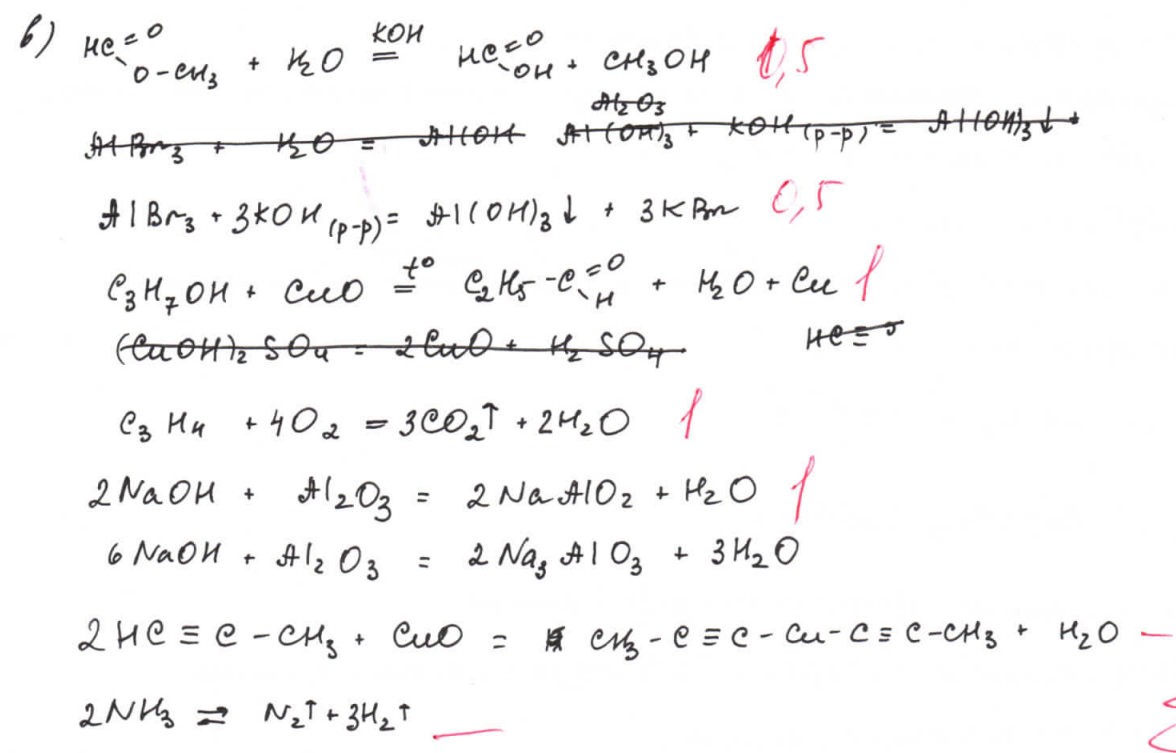 в) HC=O O-CH₃ + H₂O KOH = HC=O -OH + CH₃OH 0,5
Al₂O₃
AlBr₃ + H₂O = Al(OH Al(OH)₃ + KOH (р-р) = Al(OH)₃↓ +
AlBr₃ + 3KOH (р-р) = Al(OH)₃↓ + 3KBr 0,5
C₃H₇OH + CuO t° = C₂H₅-C=O -H + H₂O + Cu 1
(CuOH)₂SO₄ = 2CuO + H₂SO₄ HC≡
C₃H₄ + 4O₂ = 3CO₂↑ + 2H₂O 1
2NaOH + Al₂O₃ = 2NaAlO₂ + H₂O 1
6NaOH + Al₂O₃ = 2Na₃AlO₃ + 3H₂O
2HC≡C-CH₃ + CuO = CH₃-C≡C-Cu-C≡C-CH₃ + H₂O –
2NH₃ ⇄ N₂↑ + 3H₂↑ —